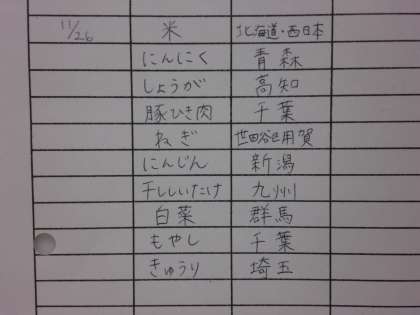 11/26 米 北海道・西日本
にんにく 青森
しょうが 高知
豚ひき肉 千葉
ねぎ 世田谷区用賀
にんじん 新潟
干ししいたけ 九州
白菜 群馬
もやし 千葉
きゅうり 埼玉